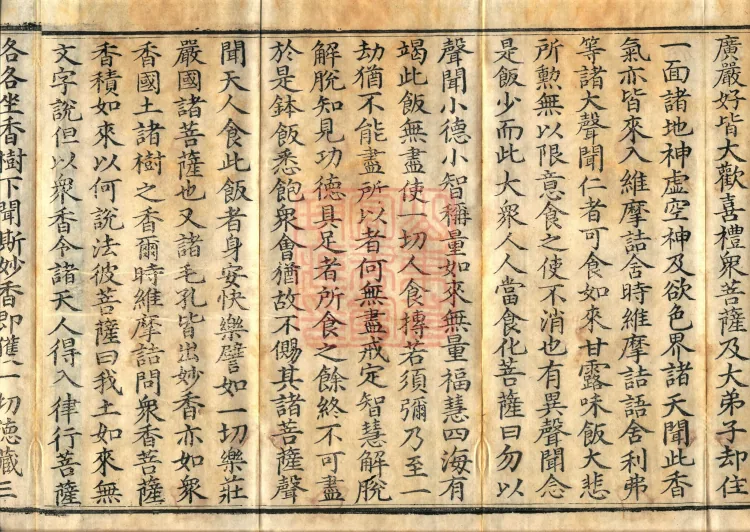 廣嚴好皆大歡喜禮衆菩薩及大弟子却住
一面諸地神虛空神及欲色界諸天聞此香
氣亦皆來入維摩詰舍時維摩詰語舍利弗
等諸大聲聞仁者可食如來甘露味飯大悲
所勲無以限意食之使不消也有異聲聞念
是飯少而此大衆人人當食化菩薩曰勿以
聲聞小德小智稱量如來無量福慧四海有
竭此飯無盡使一切人食摶若須彌乃至一
劫猶不能盡所以者何無盡戒定智慧解脫
解脫知見功德具足者所食之餘終不可盡
於是鉢飯悉飽衆會猶故不儩其諸菩薩聲
聞天人食此飯者身安快樂譬如一切樂莊
嚴國諸菩薩也又諸毛孔皆出妙香亦如衆
香國土諸樹之香爾時維摩詰問衆香菩薩
香積如來以何說法彼菩薩曰我土如來無
文字說但以衆香令諸天人得入律行菩薩
各各坐香樹下聞斯妙香即獲一切德藏三